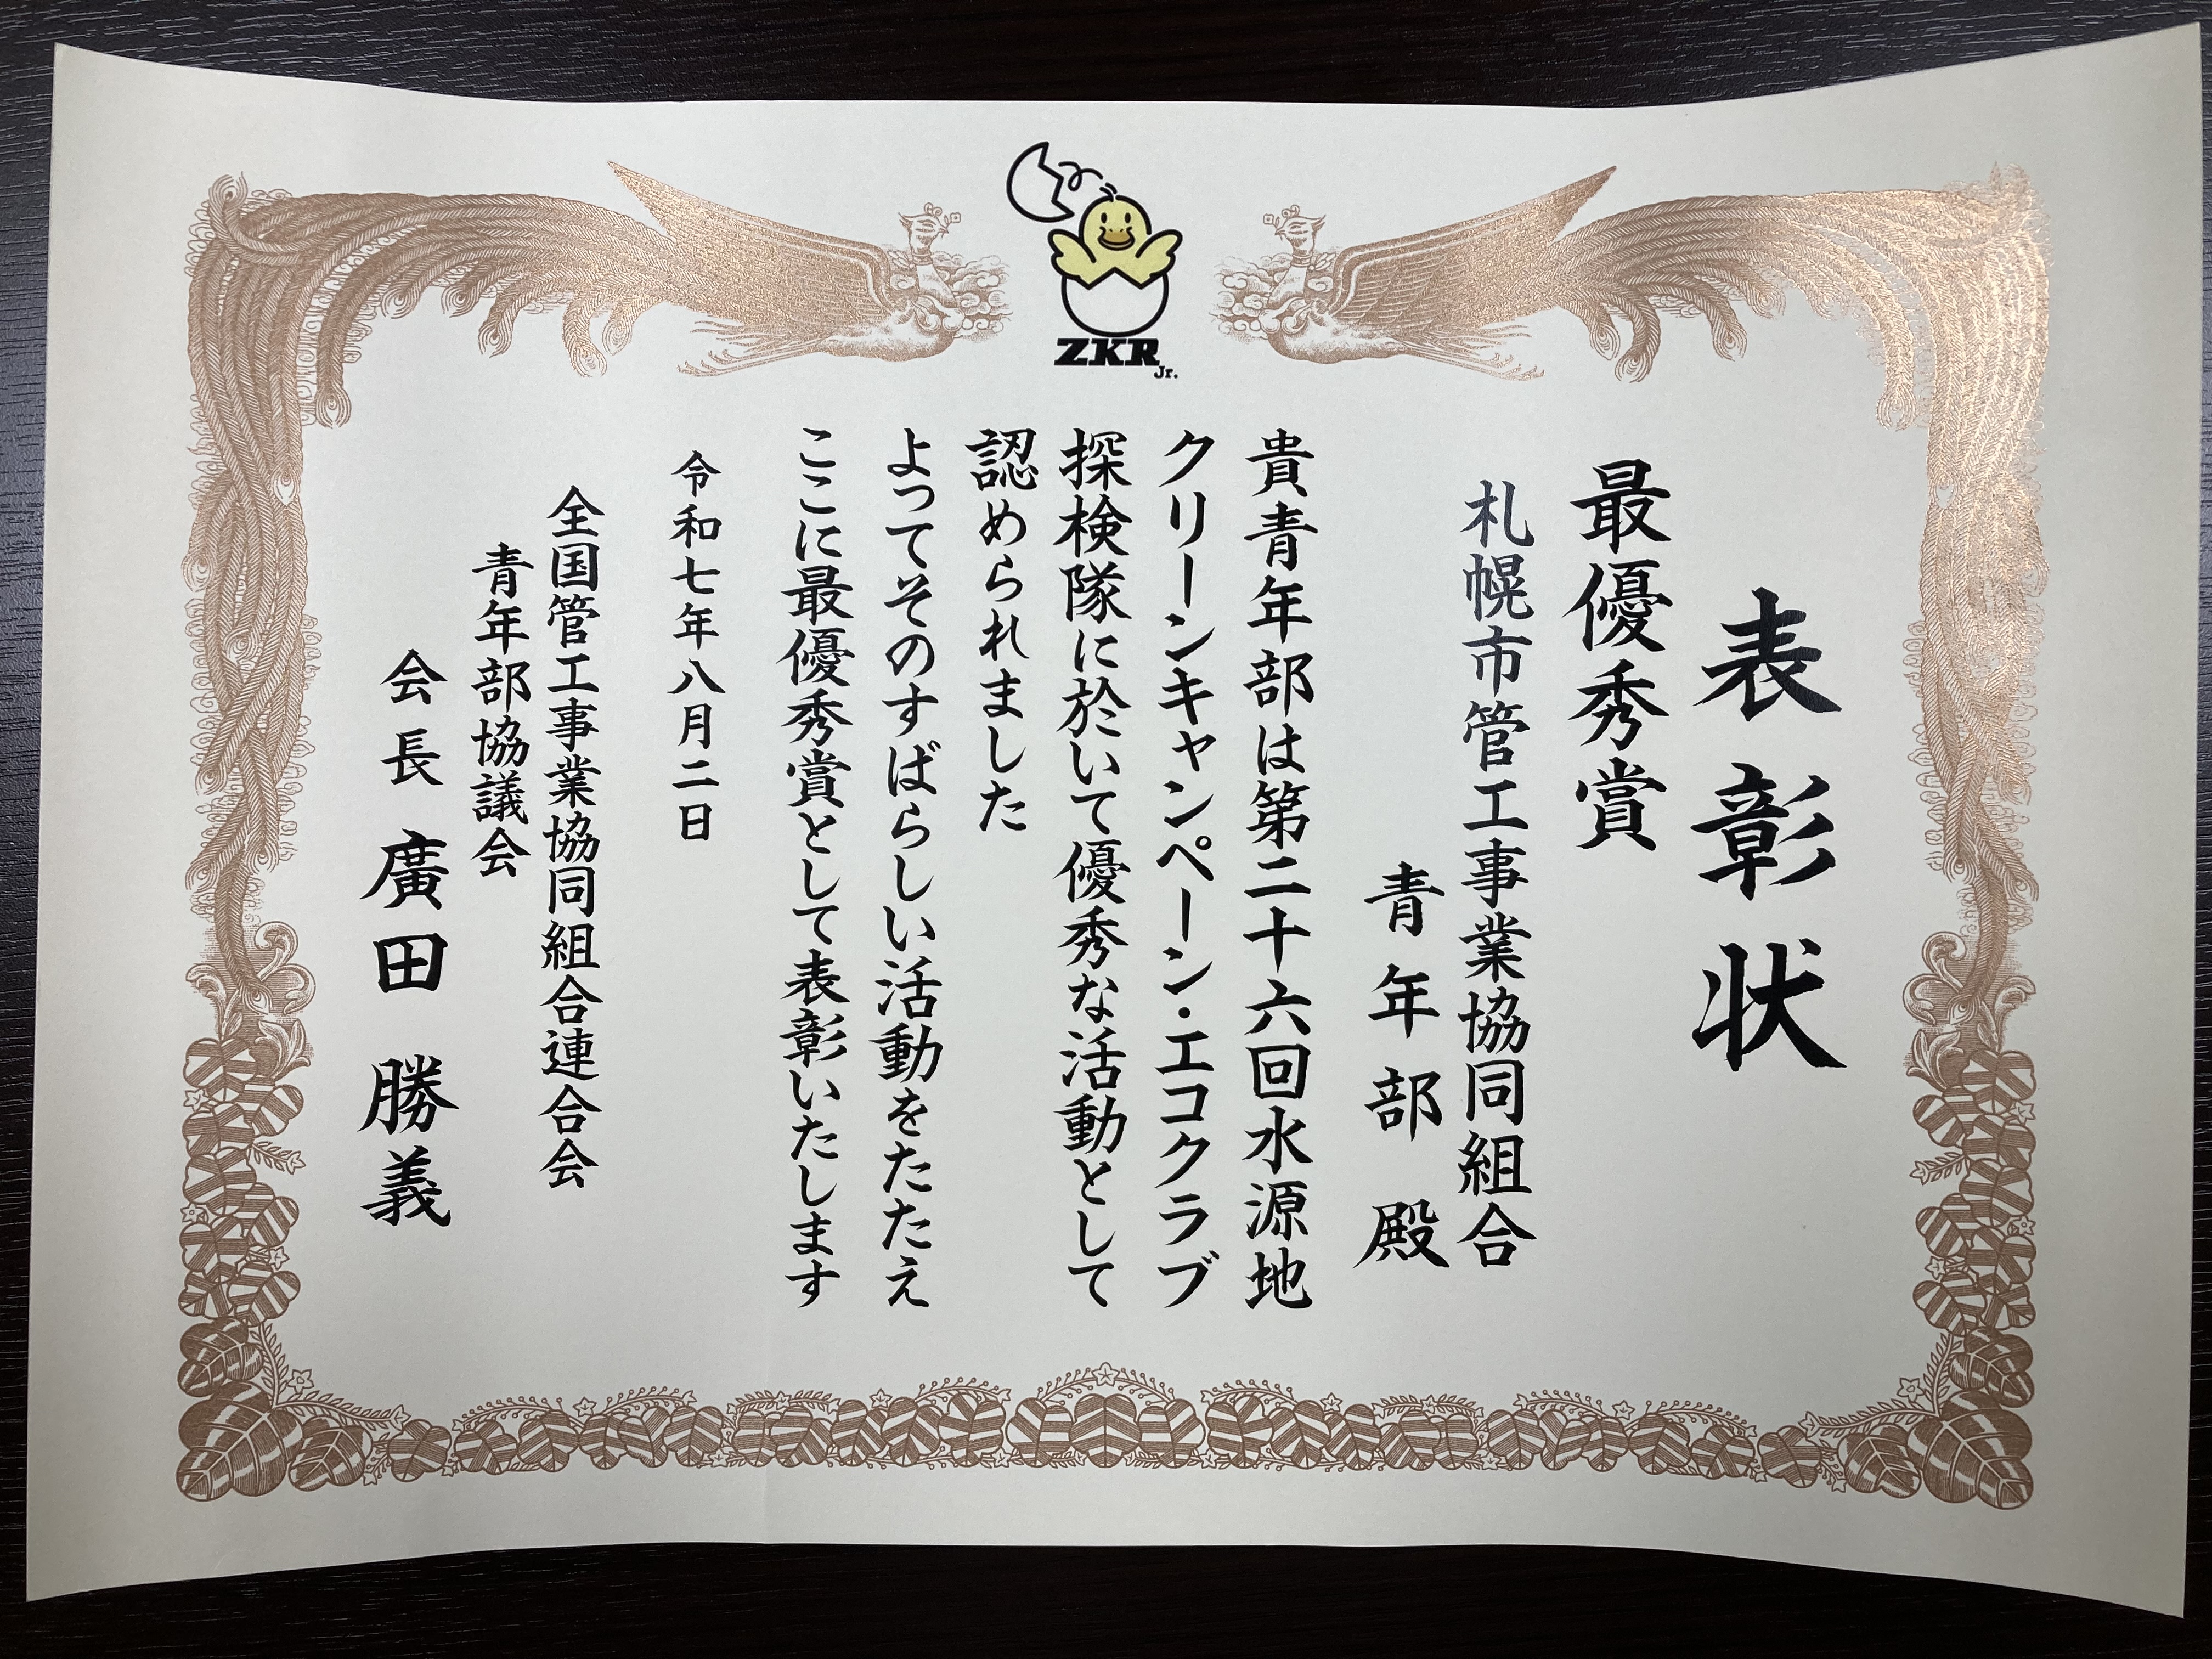 ZKR
Jr.
表彰状
最優秀賞
札幌市管工事業協同組合
青年部殿
貴青年部は第二十六回水源地
クリーンキャンペーン・エコクラブ
探検隊に於いて優秀な活動として
認められました
よってそのすばらしい活動をたたえ
ここに最優秀賞として表彰いたします
令和七年八月二日
全国管工事業協同組合連合会
青年部協議会
会長 廣田 勝義